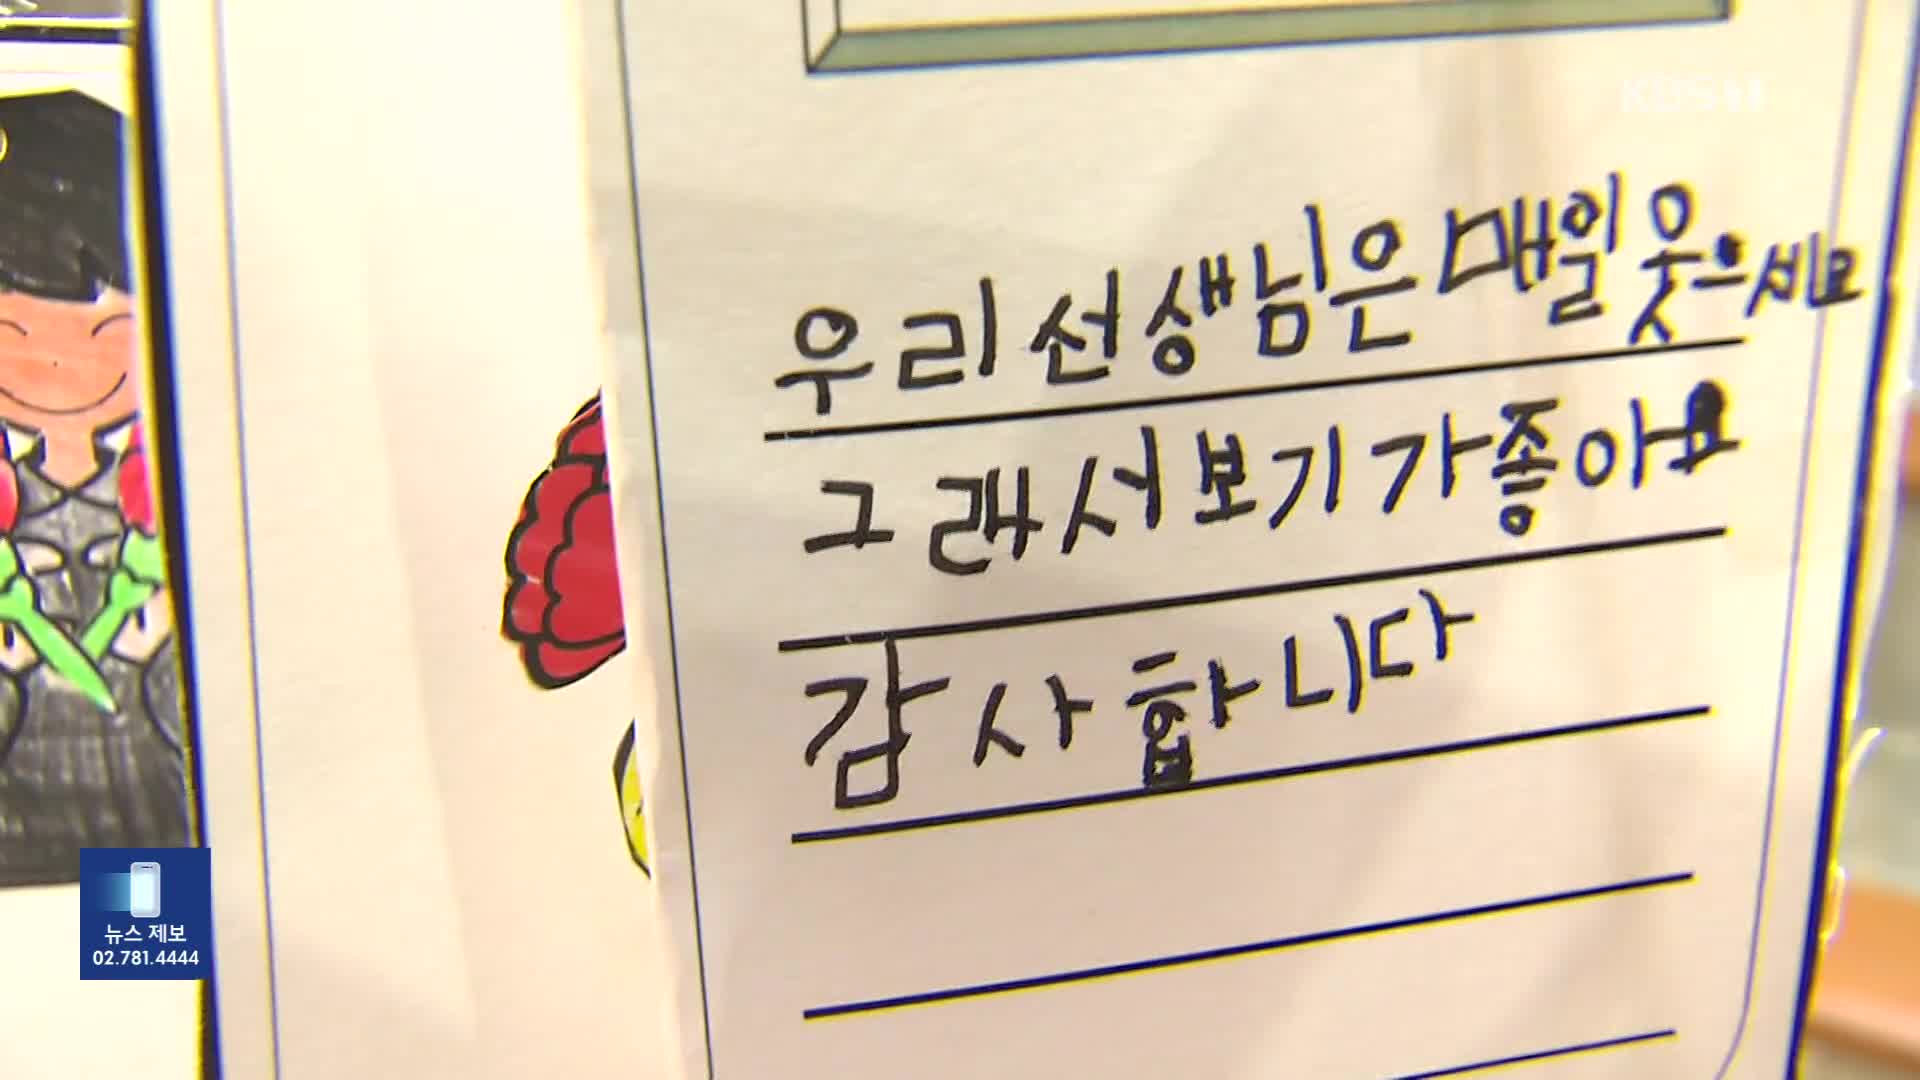 KBS 1
우리 선생님은 매일 웃으세요
그래서 보기가 좋아요
감사합니다
뉴스 제보
02.781.4444